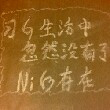 习的生活中
忽然没有了
Ni的存在